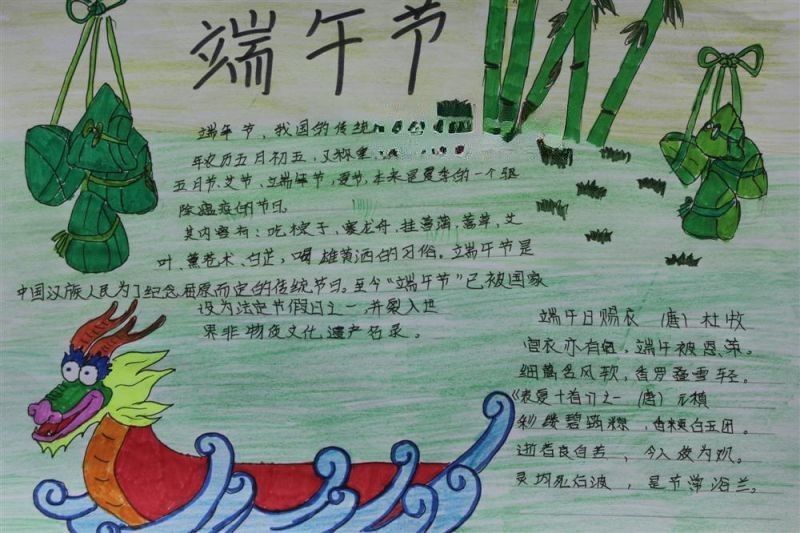 端午节
端午节，我国的传统
农历五月初五，又称重
五月节、艾节、立端午节，夏节，本来是夏季的一个驱
除瘟疫的节日
其内容有：吃粽子、赛龙舟、挂菖蒲、蒿草、艾
叶、薰苍术、白芷，喝雄黄酒的习俗。立端午节是
中国汉族人民为了纪念屈原而定的传统节日。至今“端午节”已被国家
设为法定节假日之一，并裂入世
界非物质文化遗产名录。
端午日赐衣（唐）杜牧
宫衣亦有名，端午被恩荣。
细葛含风软，香罗叠雪轻。
《表夏十首》之一（唐）元稹
彩缕碧筠粽，香粳白玉团。
逝者良自苦，今人反为欢。
灵均死后波，是节常浴兰。